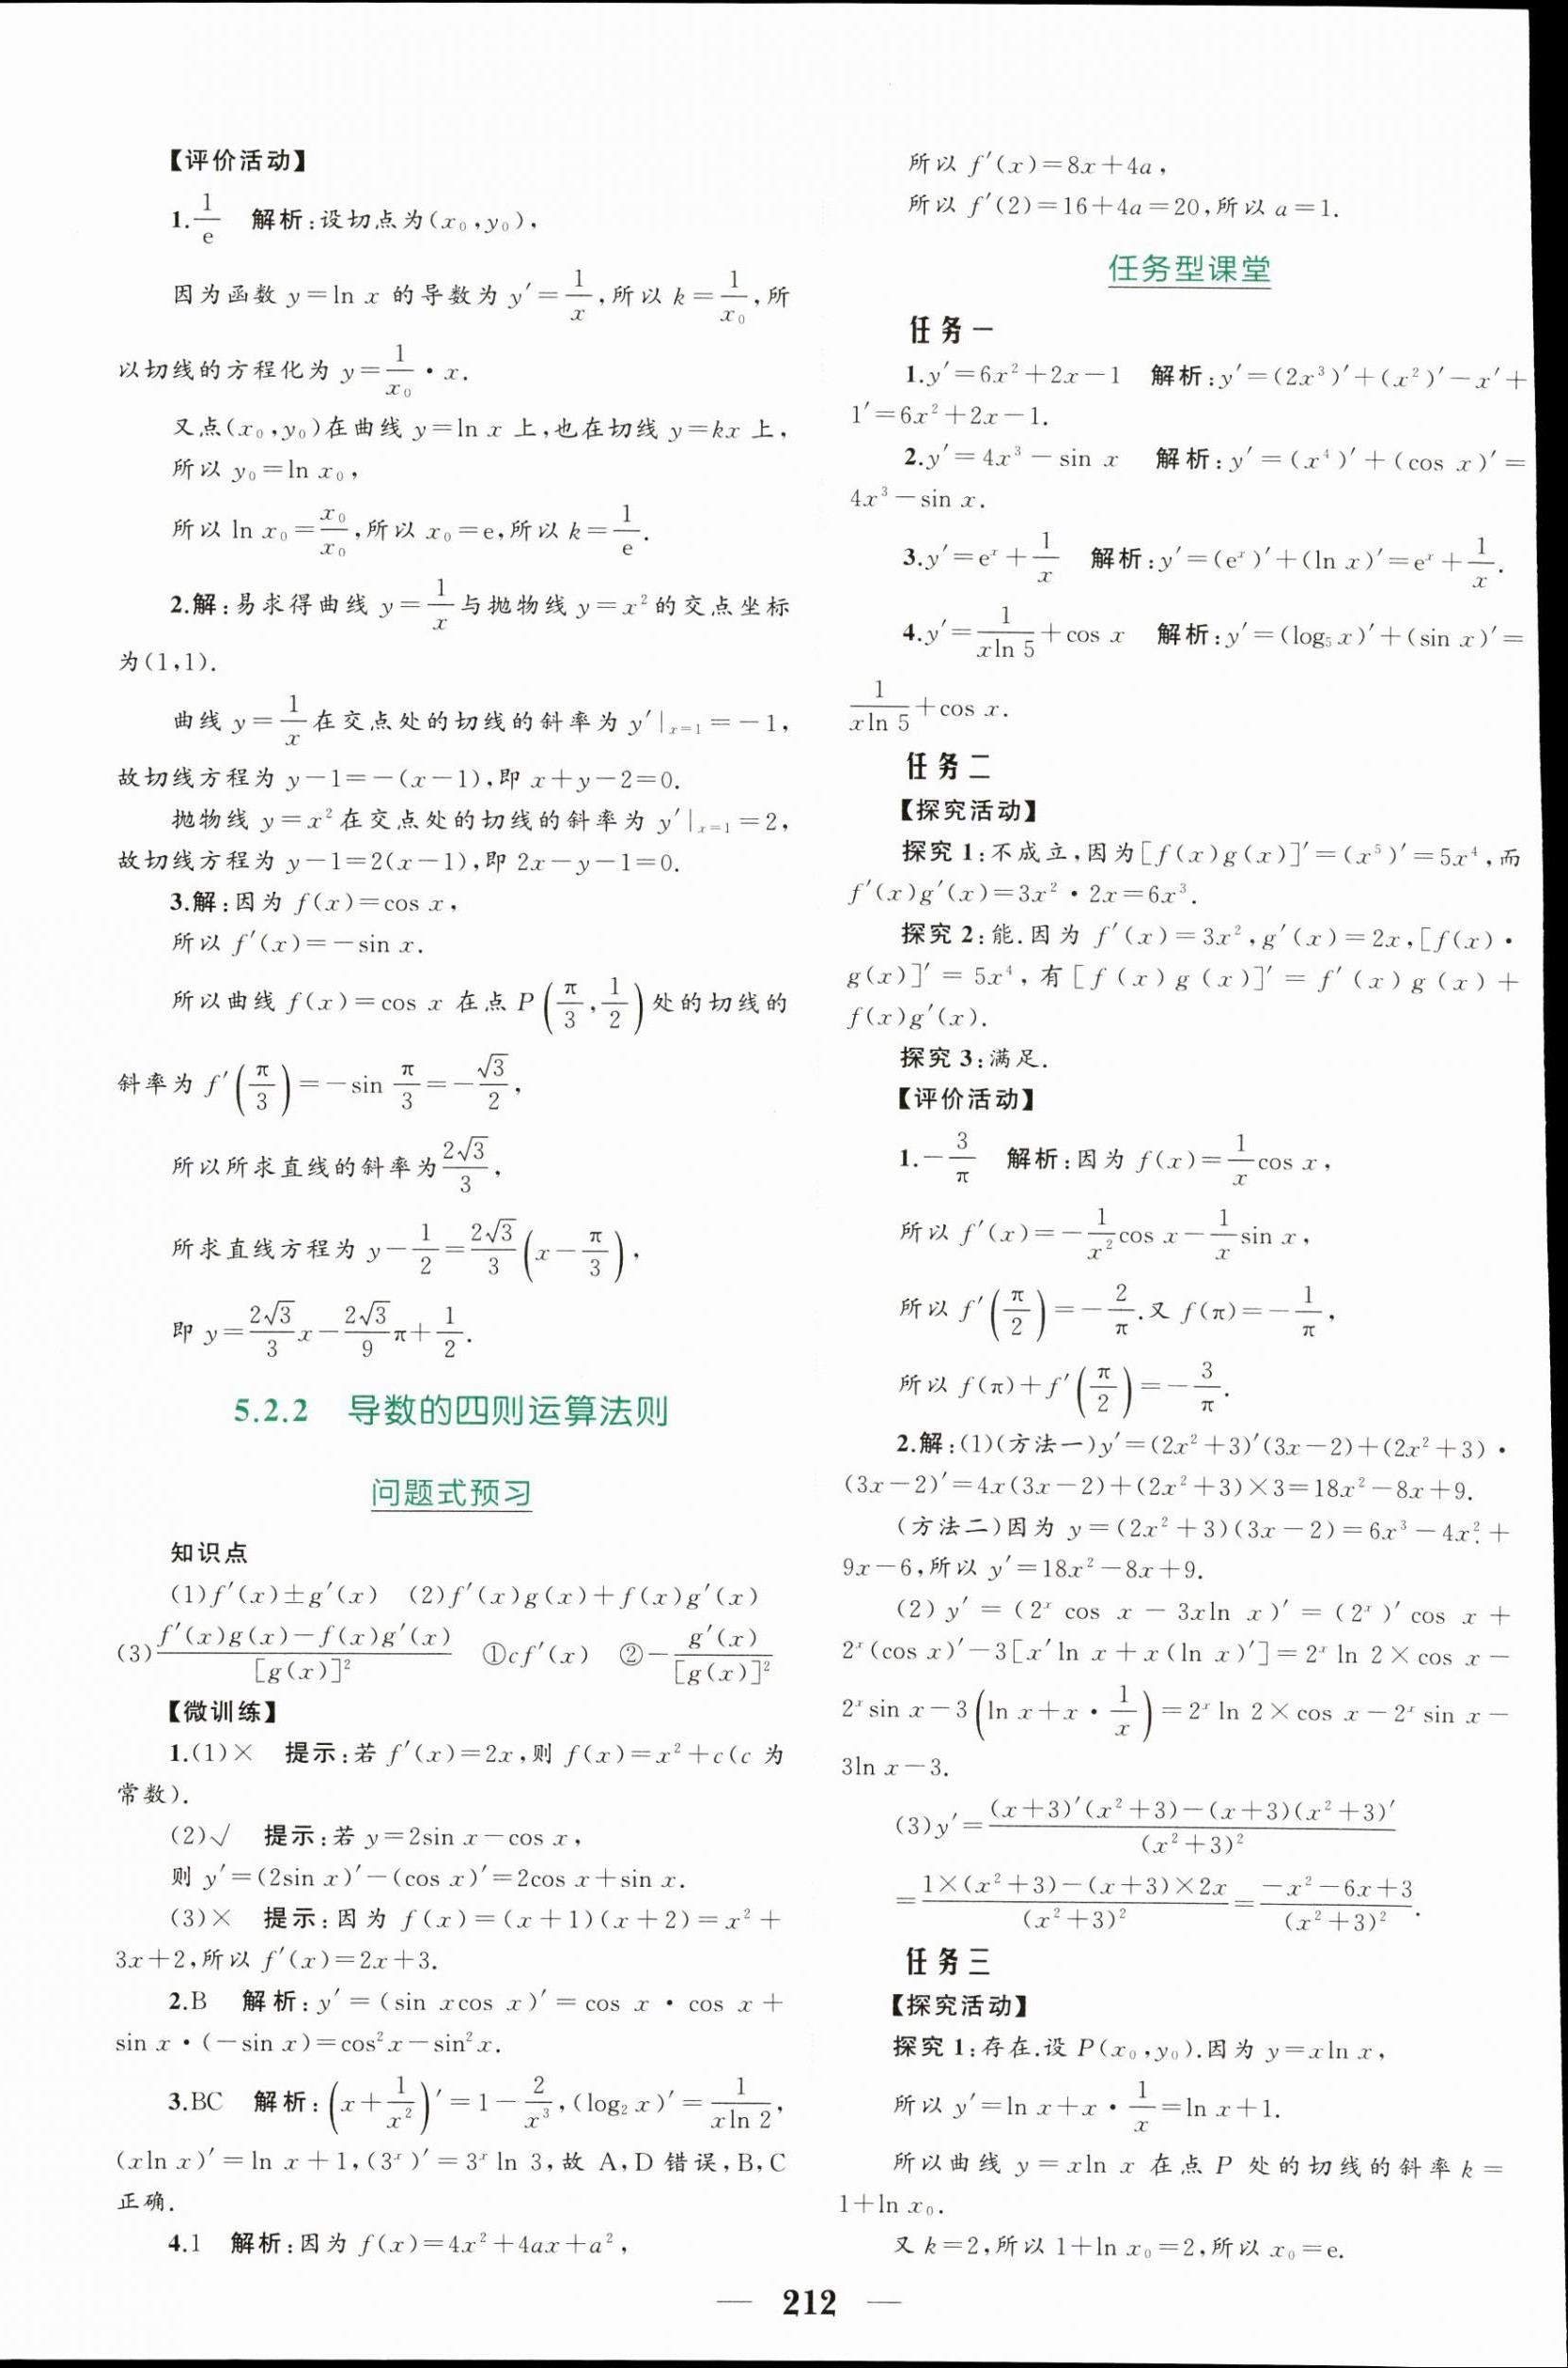 【评价活动】
1.1/e 解析:设切点为(x₀,y₀),
因为函数 y=ln x 的导数为 y′=1/x,所以 k=1/x₀,所
以切线的方程化为 y=1/x₀·x.
又点(x₀,y₀)在曲线 y=ln x 上,也在切线 y=kx 上,
所以 y₀=ln x₀,
所以 ln x₀=x₀/x₀,所以 x₀=e,所以 k=1/e.
2.解:易求得曲线 y=1/x与抛物线 y=x²的交点坐标
为(1,1).
曲线 y=1/x在交点处的切线的斜率为 y′|ₓ₌₁=-1,
故切线方程为 y-1=-(x-1),即 x+y-2=0.
抛物线 y=x²在交点处的切线的斜率为 y′|ₓ₌₁=2,
故切线方程为 y-1=2(x-1),即 2x-y-1=0.
3.解:因为 f(x)=cos x,
所以 f′(x)=-sin x.
所以曲线 f(x)=cos x 在点 P(π/3,1/2)处的切线的
斜率为 f′(π/3)=-sin π/3=-√3/2,
所以所求直线的斜率为2√3/3,
所求直线方程为 y-1/2=2√3/3(x-π/3),
即 y=2√3/3x-2√3/9π+1/2.
5.2.2 导数的四则运算法则
问题式预习
知识点
(1)f′(x)±g′(x) (2)f′(x)g(x)+f(x)g′(x)
(3)f′(x)g(x)-f(x)g′(x)/[g(x)]² ①cf′(x) ②-g′(x)/[g(x)]²
【微训练】
1.(1)× 提示:若 f′(x)=2x,则 f(x)=x²+c(c 为
常数).
(2)√ 提示:若 y=2sin x-cos x,
则 y′=(2sin x)′-(cos x)′=2cos x+sin x.
(3)× 提示:因为 f(x)=(x+1)(x+2)=x²+
3x+2,所以 f′(x)=2x+3.
2.B 解析:y′=(sin xcos x)′=cos x·cos x+
sin x·(-sin x)=cos²x-sin²x.
3.BC 解析:(x+1/x²)′=1-2/x³,(log₂ x)′=1/xln 2,
(xln x)′=ln x+1,(3ˣ)′=3ˣ ln 3,故 A,D 错误,B,C
正确.
4.1 解析:因为 f(x)=4x²+4ax+a²,
所以 f′(x)=8x+4a,
所以 f′(2)=16+4a=20,所以 a=1.
任务型课堂
任务一
1.y′=6x²+2x-1 解析:y′=(2x³)′+(x²)′-x′+
1′=6x²+2x-1.
2.y′=4x³-sin x 解析:y′=(x⁴)′+(cos x)′=
4x³-sin x.
3.y′=eˣ+1/x 解析:y′=(eˣ)′+(ln x)′=eˣ+1/x.
4.y′=1/xln 5+cos x 解析:y′=(log₅ x)′+(sin x)′=
1/xln 5+cos x.
任务二
【探究活动】
探究 1:不成立,因为[f(x)g(x)]′=(x⁵)′=5x⁴,而
f′(x)g′(x)=3x²·2x=6x³.
探究 2:能.因为 f′(x)=3x²,g′(x)=2x,[f(x)·
g(x)]′=5x⁴,有[f(x)g(x)]′=f′(x)g(x)+
f(x)g′(x).
探究 3:满足.
【评价活动】
1.-3/π 解析:因为 f(x)=1/xcos x,
所以 f′(x)=-1/x²cos x-1/xsin x,
所以 f′(π/2)=-2/π.又 f(π)=-1/π,
所以 f(π)+f′(π/2)=-3/π.
2.解:(1)(方法一)y′=(2x²+3)′(3x-2)+(2x²+3)·
(3x-2)′=4x(3x-2)+(2x²+3)×3=18x²-8x+9.
(方法二)因为 y=(2x²+3)(3x-2)=6x³-4x²+
9x-6,所以 y′=18x²-8x+9.
(2) y′=(2ˣ cos x-3xln x)′=(2ˣ)′cos x+
2ˣ(cos x)′-3[x′ln x+x(ln x)′]=2ˣ ln 2×cos x-
2ˣ sin x-3(ln x+x·1/x)=2ˣ ln 2×cos x-2ˣ sin x-
3ln x-3.
(3)y′=(x+3)′(x²+3)-(x+3)(x²+3)′/(x²+3)²
=1×(x²+3)-(x+3)×2x/(x²+3)²=-x²-6x+3/(x²+3)².
任务三
【探究活动】
探究 1:存在.设 P(x₀,y₀).因为 y=xln x,
所以 y′=ln x+x·1/x=ln x+1.
所以曲线 y=xln x 在点 P 处的切线的斜率 k=
1+ln x₀.
又 k=2,所以 1+ln x₀=2,所以 x₀=e.
— 212 —